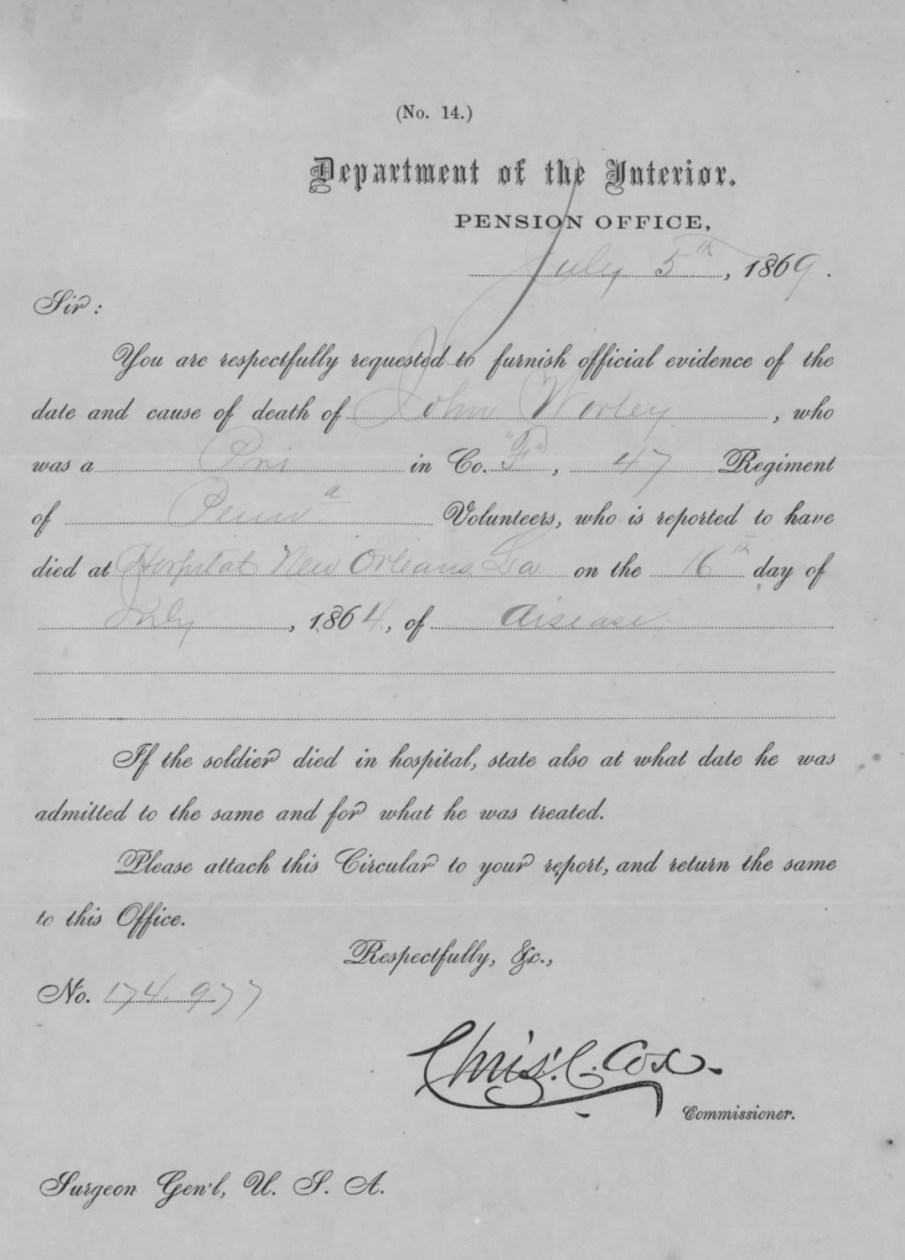 (No. 14.)
Department of the Interior.
PENSION OFFICE,
July 5th, 1869.
Sir:
You are respectfully requested to furnish official evidence of the
date and cause of death of John Worley, who
was a Pri in Co. "F", 47 Regiment
of Penna Volunteers, who is reported to have
died at Hospital New Orleans La on the 16th day of
July, 1864, of disease
If the soldier died in hospital, state also at what date he was
admitted to the same and for what he was treated.
Please attach this Circular to your report, and return the same
to this Office.
Respectfully, &c.,
No. 174.977
Chris. C. Cox.
Commissioner.
Surgeon Gen'l, U. S. A.